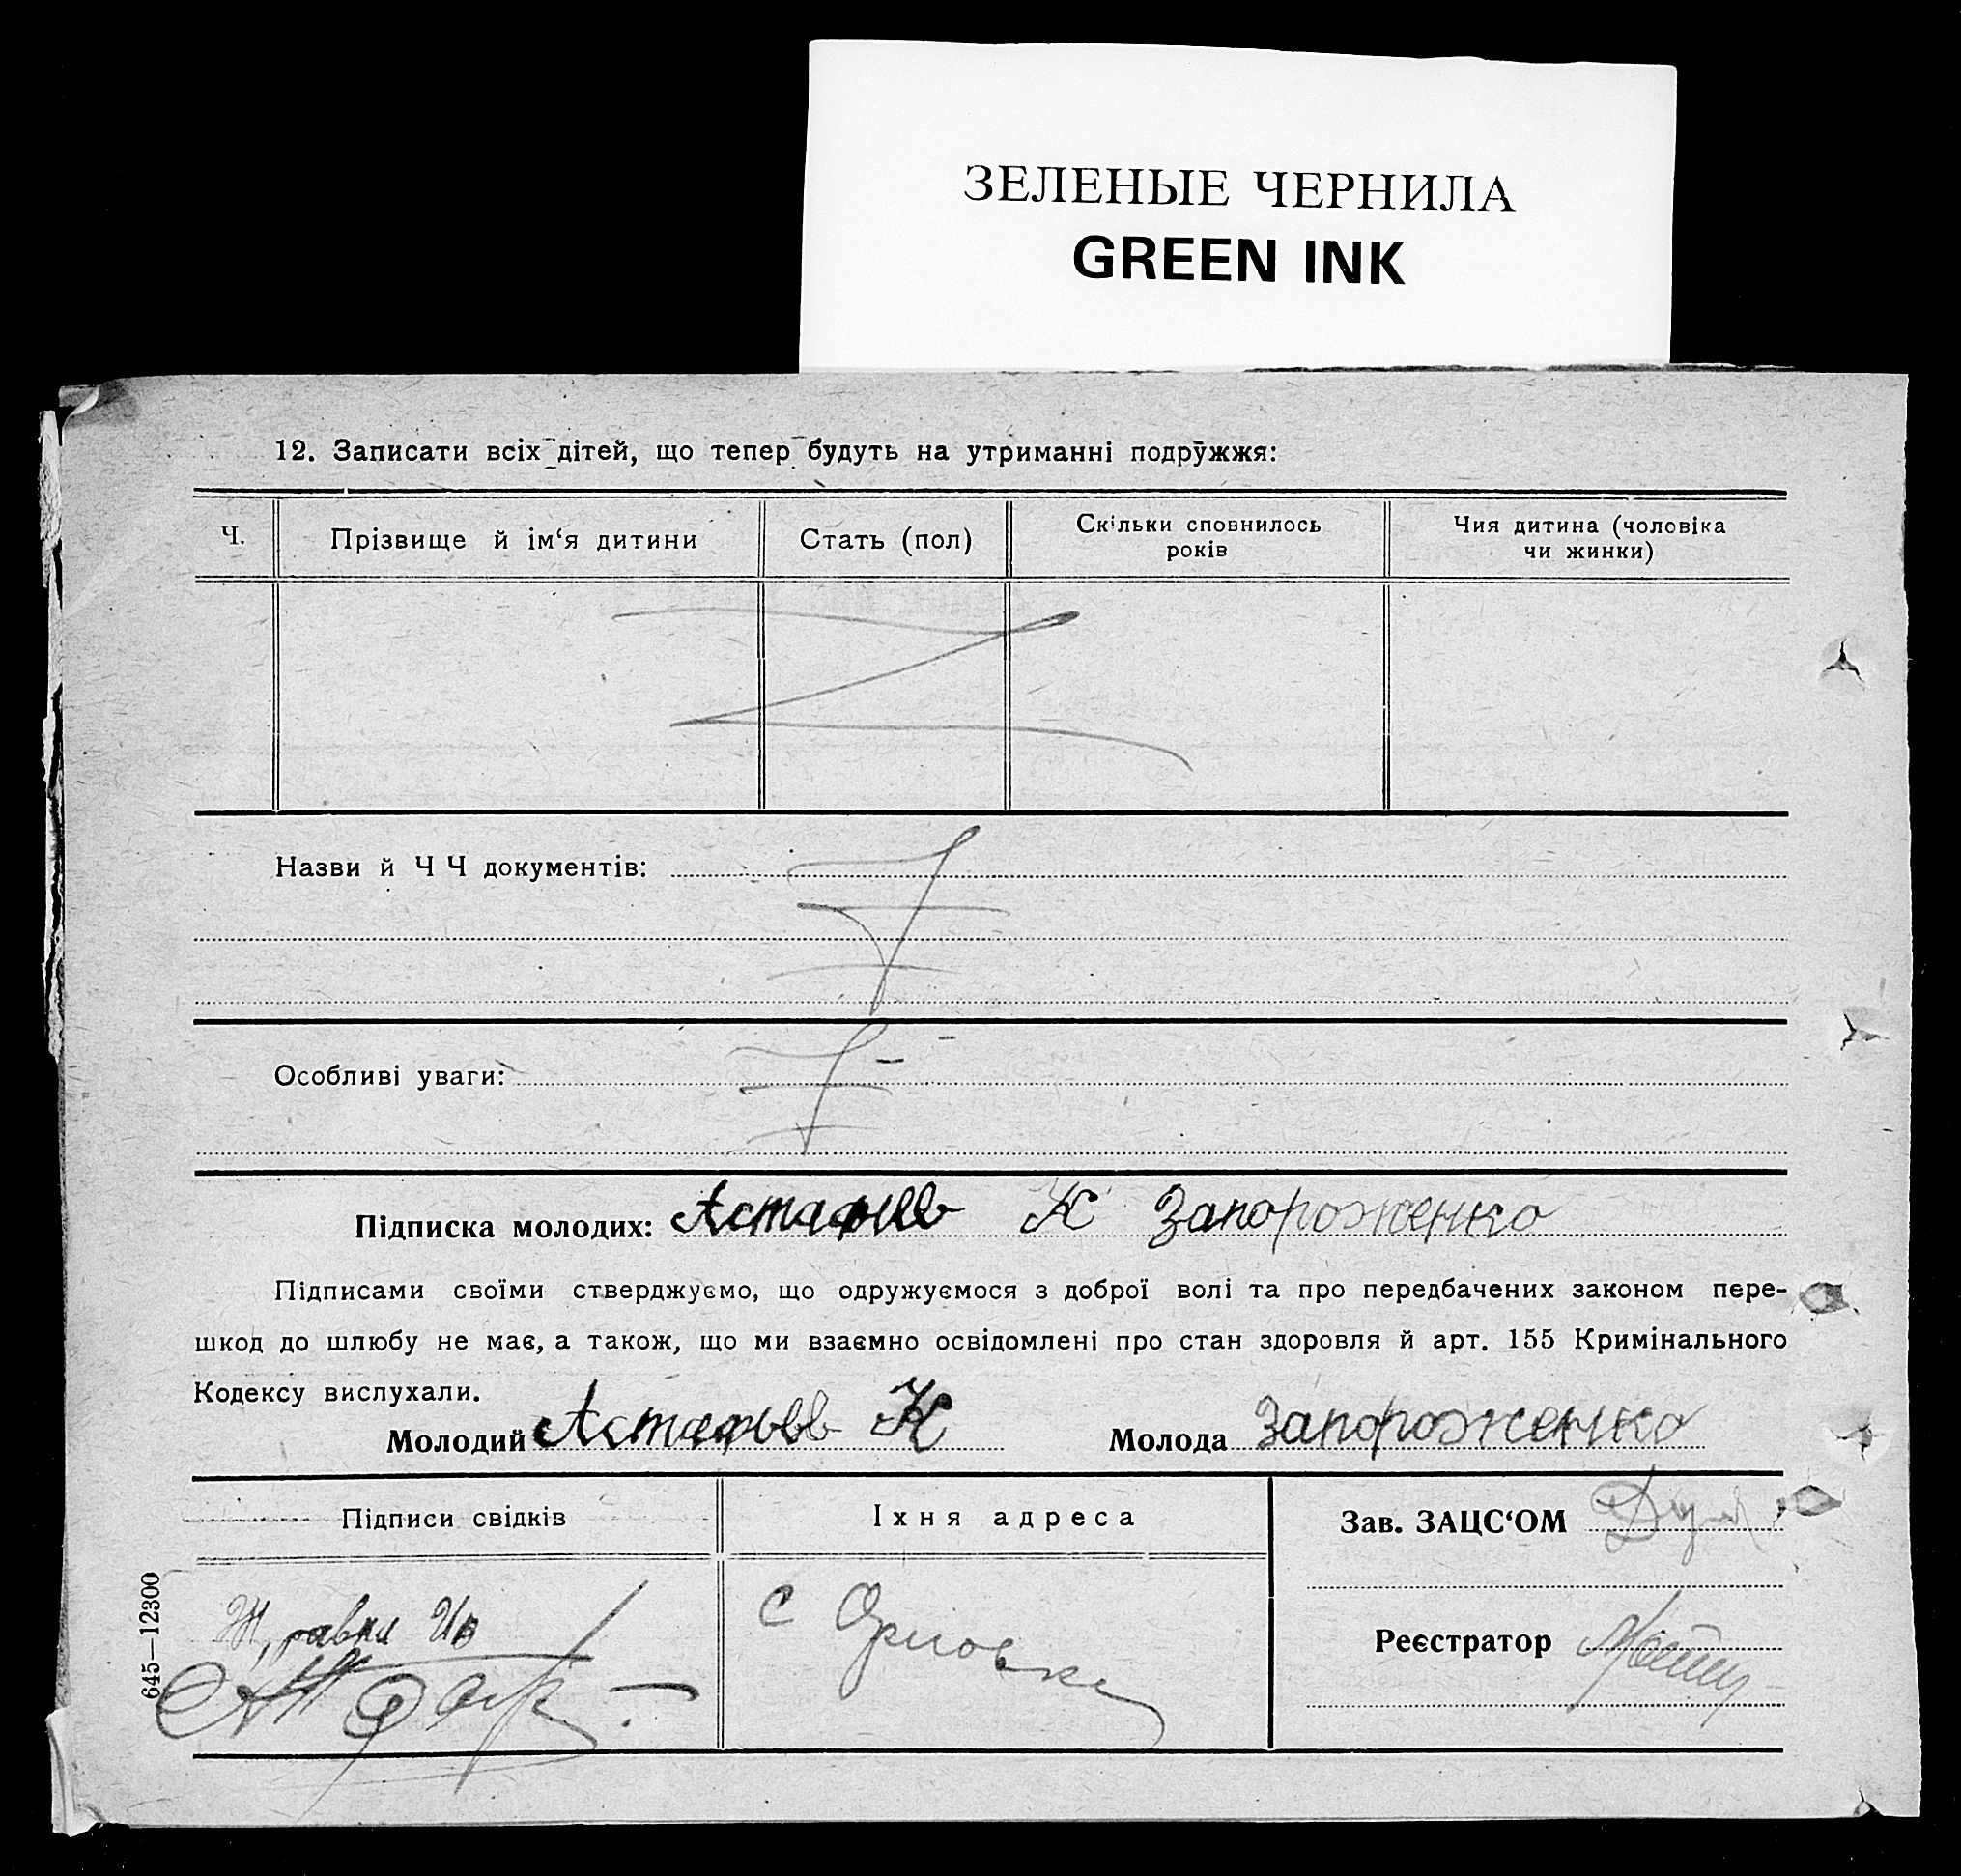 ЗЕЛЕНЫЕ ЧЕРНИЛА
GREEN INK
12. Записати всіх дітей, що тепер будуть на утриманні подружжя:
Ч.
Прізвище й ім‘я дитини
Стать (пол)
Скільки сповнилось
років
Чия дитина (чоловіка
чи жинки)
Назви й Ч Ч документів:
Особливі уваги:
Підписка молодих: Астафьев К Запороженко
Підписами своїми стверджуємо, що одружуємося з доброї волі та про передбачених законом пере-
шкод до шлюбу не має, а також, що ми взаємно освідомлені про стан здоровля й арт. 155 Кримінального
Кодексу вислухали.
Молодий Астафьев К Молода Запороженко
Підписи свідків
Іхня адреса
Зав. ЗАЦС‘ОМ
с
Реєстратор
645—12300